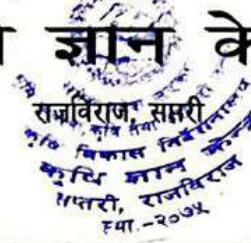 ज्ञान के
राजविराज, सप्तरी
कृषि विकास निर्देशनालय
कृषि ज्ञान केन्द्र
सप्तरी, राजविराज
स्था.-२०७५